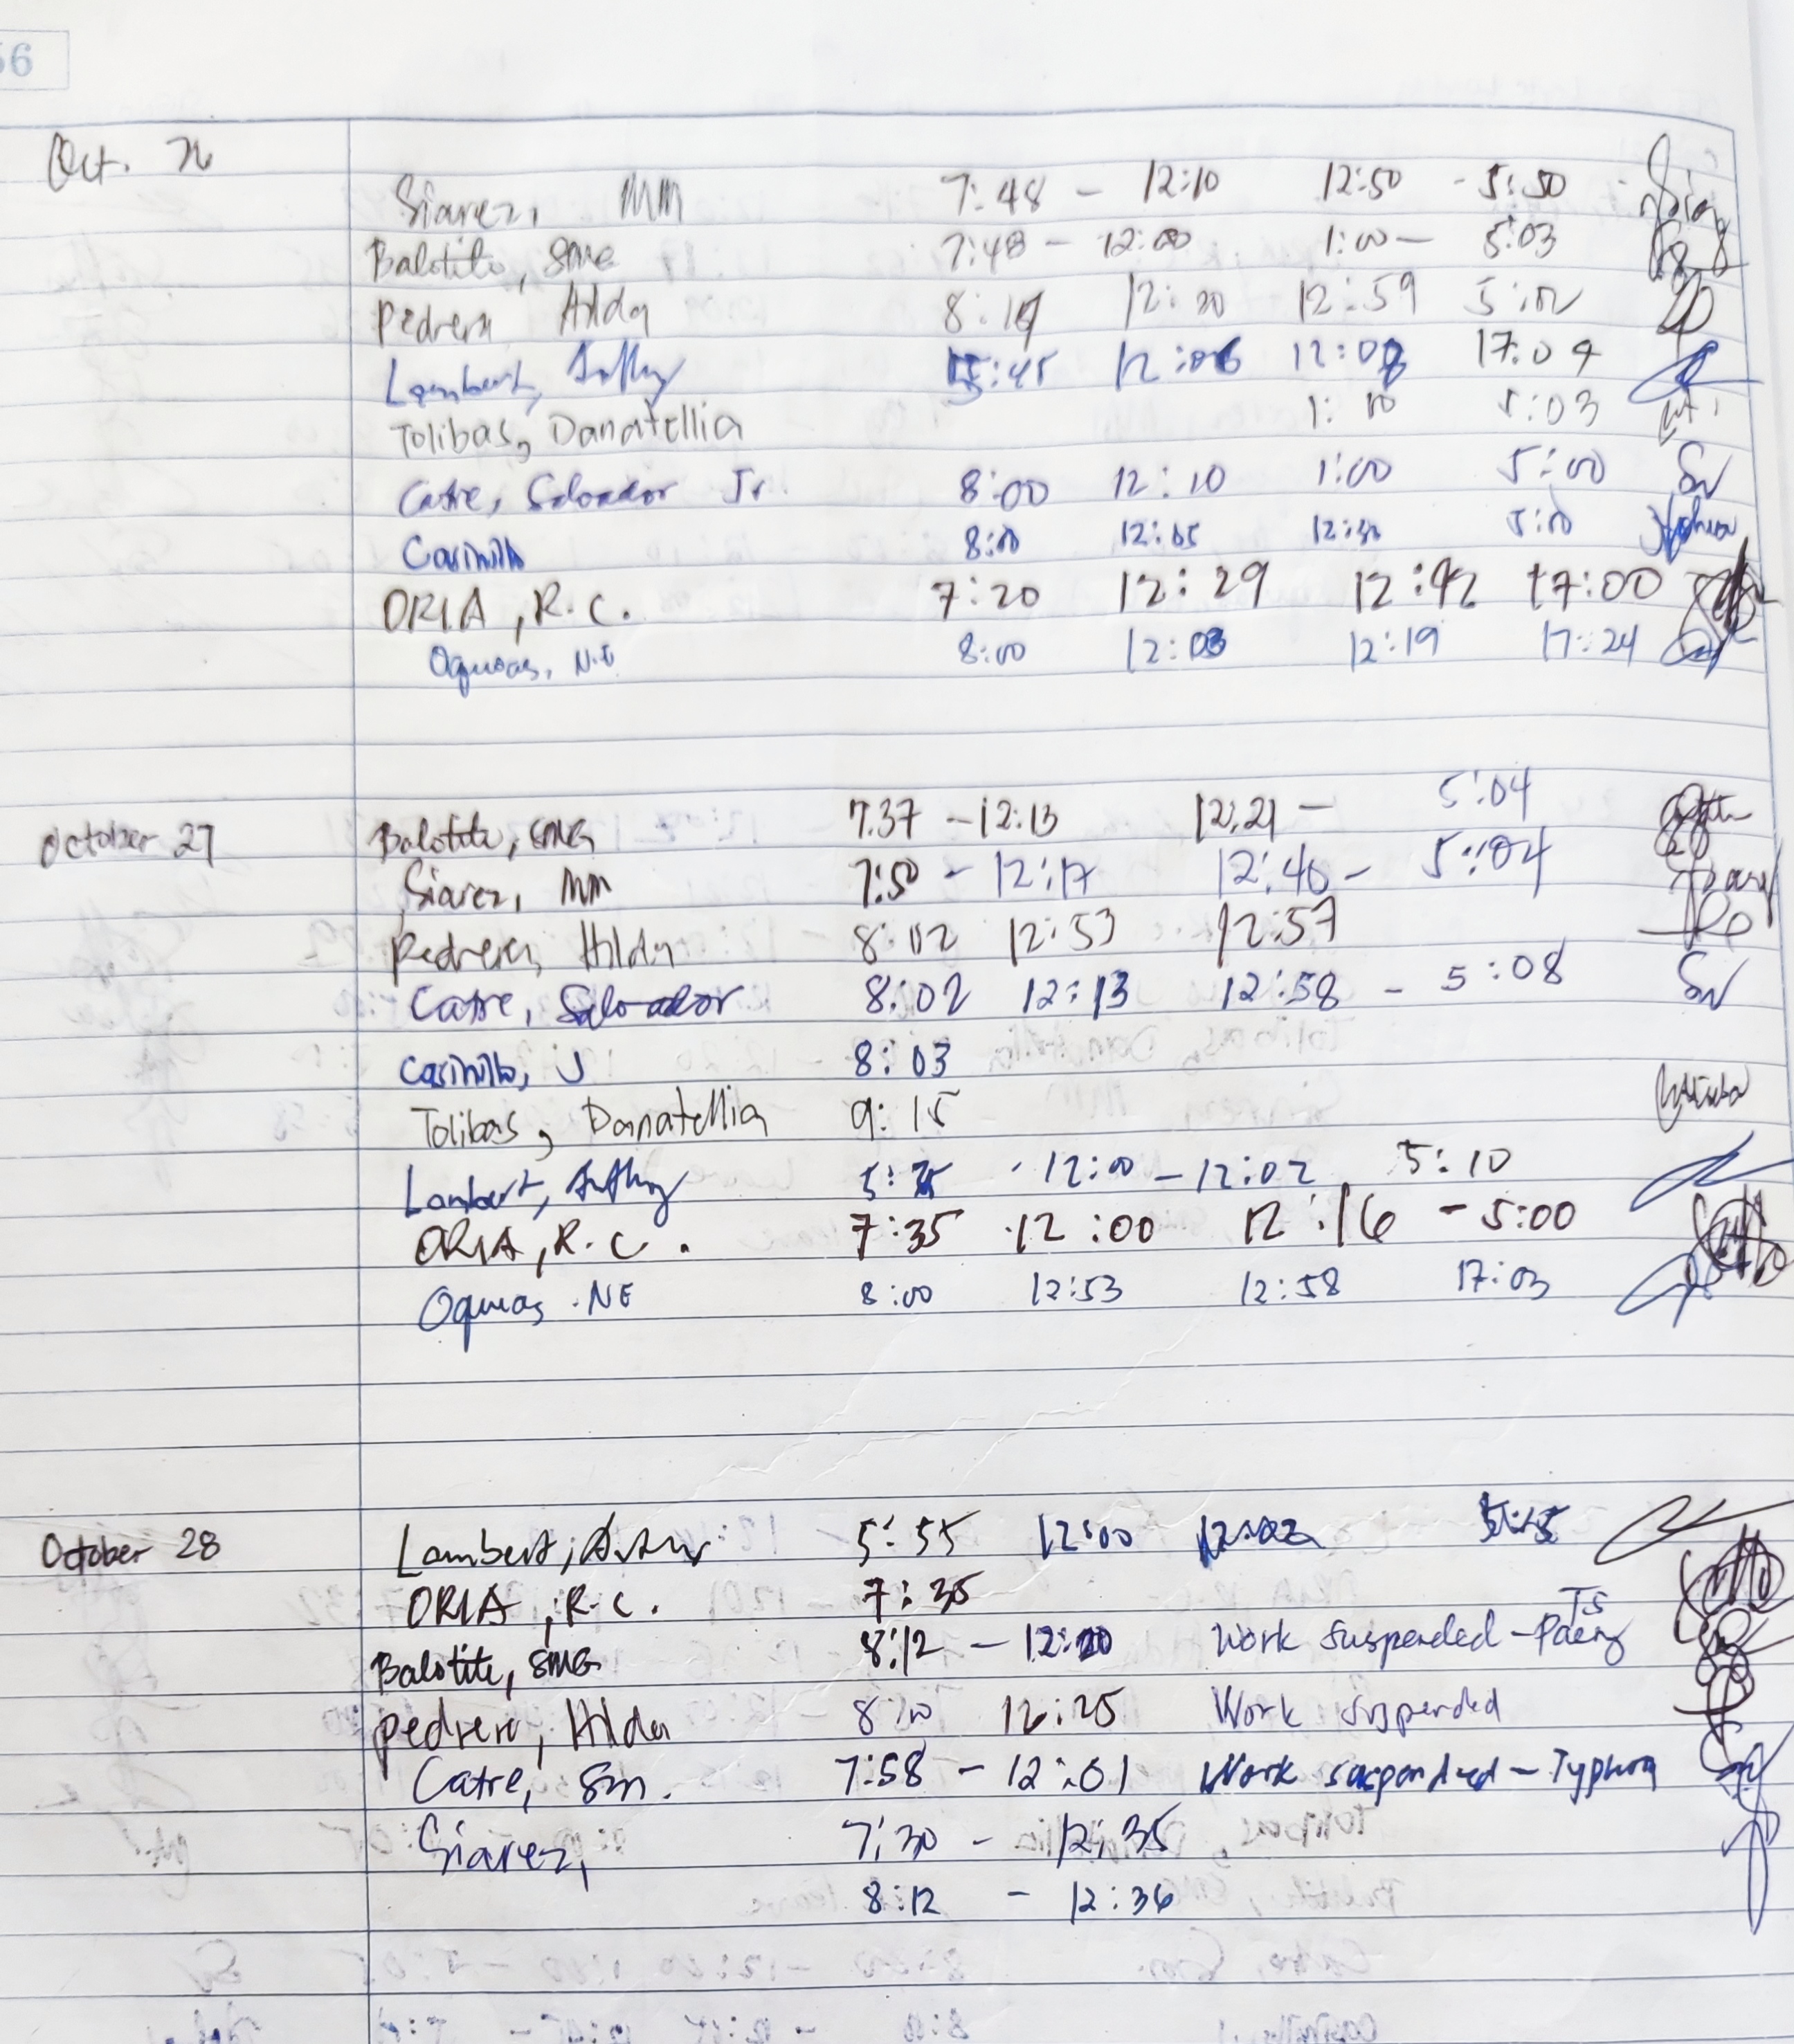 56
Oct. 26
Siarez, MM 7:48 - 12:10 12:50 - 5:50
Balotite, SMG 7:48 - 12:00 1:00 - 5:03
Pedrera Hilda 8:19 12:20 12:59 5:02
Lambert, Anthony 5:45 12:06 12:08 17:09
Tolibas, Danatellia 1:10 5:03
Catre, Salvador Jr. 8:00 12:10 1:00 5:00 SV
Casinillo 8:00 12:05 12:30 5:10
ORIA, R.C. 7:20 12:29 12:42 17:00
Oquias, N.E 8:00 12:03 12:19 17:24
October 27
Balotite, SMG 7.37 - 12:13 12:21 - 5:04
Siarez, MM 7:50 - 12:17 12:40 - 5:04
Pedrera, Hilda 8:02 12:53 12:57
Catre, Salvador 8:02 12:13 12:58 - 5:08 SV
Casinillo, J 8:03
Tolibas, Danatellia 9:15
Lambert, Anthony 5: - 12:00 - 12:02 5:10
ORIA, R.C. 7:35 12:00 12:16 - 5:00
Oquias NE 8:00 12:53 12:58 17:03
October 28
Lambert, 5:55 12:00 12:02 5:15
ORIA, R.C. 7:35
Balotite, SMG 8:12 - 12:20 Work suspended - TS Paeng
Pedrera, Hilda 8:10 12:25 Work suspended
Catre, Sm. 7:58 - 12:01 Work suspended - Typhoon
Siarez, 7:30 - 12:35
8:12 - 12:36